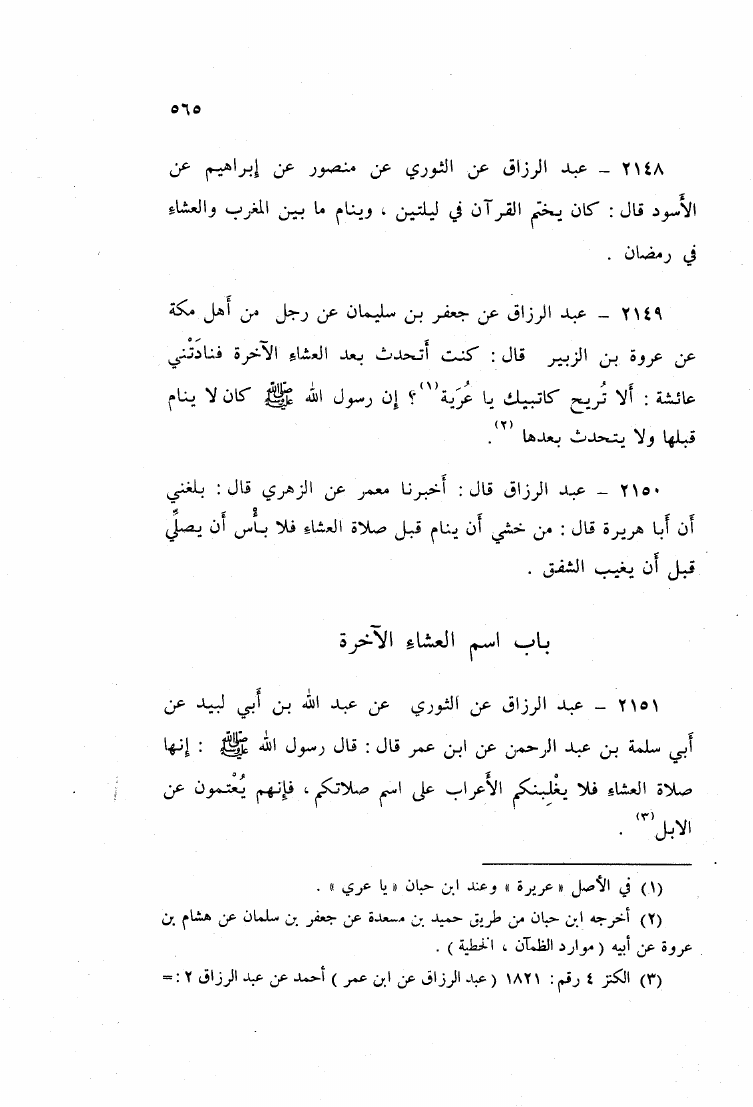 ٥٦٥
٢١٤٨ – عبد الرزاق عن الثوري عن منصور عن إبراهيم عن
الأَسود قال : كان يختم القرآن في ليلتين ، وينام ما بين المغرب والعشاء
في رمضان .
٢١٤٩ – عبد الرزاق عن جعفر بن سليمان عن رجل من أَهل مكة
عن عروة بن الزبير قال : كنت أَتحدث بعد العشاء الآخرة فنادَتْني
عائشة : أَلا تُريح كاتبيك يا عُرَية(١)؟ إن رسول الله ﷺ كان لا ينام
قبلها ولا يتحدث بعدها (٢).
٢١٥٠ – عبد الرزاق قال : أَخبرنا معمر عن الزهري قال : بلغني
أَن أَبا هريرة قال : من خشي أَن ينام قبل صلاة العشاء فلا بأْس أَن يصلِّي
قبل أَن يغيب الشفق .
باب اسم العشاء الآخرة
٢١٥١ – عبد الرزاق عن الثوري عن عبد الله بن أَبي لبيد عن
أَبي سلمة بن عبد الرحمن عن ابن عمر قال : قال رسول الله ﷺ : إنها
صلاة العشاء فلا يغْلِبنكم الأَعراب على اسم صلاتكم ، فإنهم يُعْتمون عن
الابل(٣) .
(١) في الأصل « عريرة » وعند ابن حبان « يا عري » .
(٢) أخرجه ابن حبان من طريق حميد بن مسعدة عن جعفر بن سلمان عن هشام بن
عروة عن أبيه ( موارد الظمآن ، الخطية ) .
(٣) الكنز ٤ رقم : ١٨٢١ ( عبد الرزاق عن ابن عمر ) أحمد عن عبد الرزاق ٢ :=